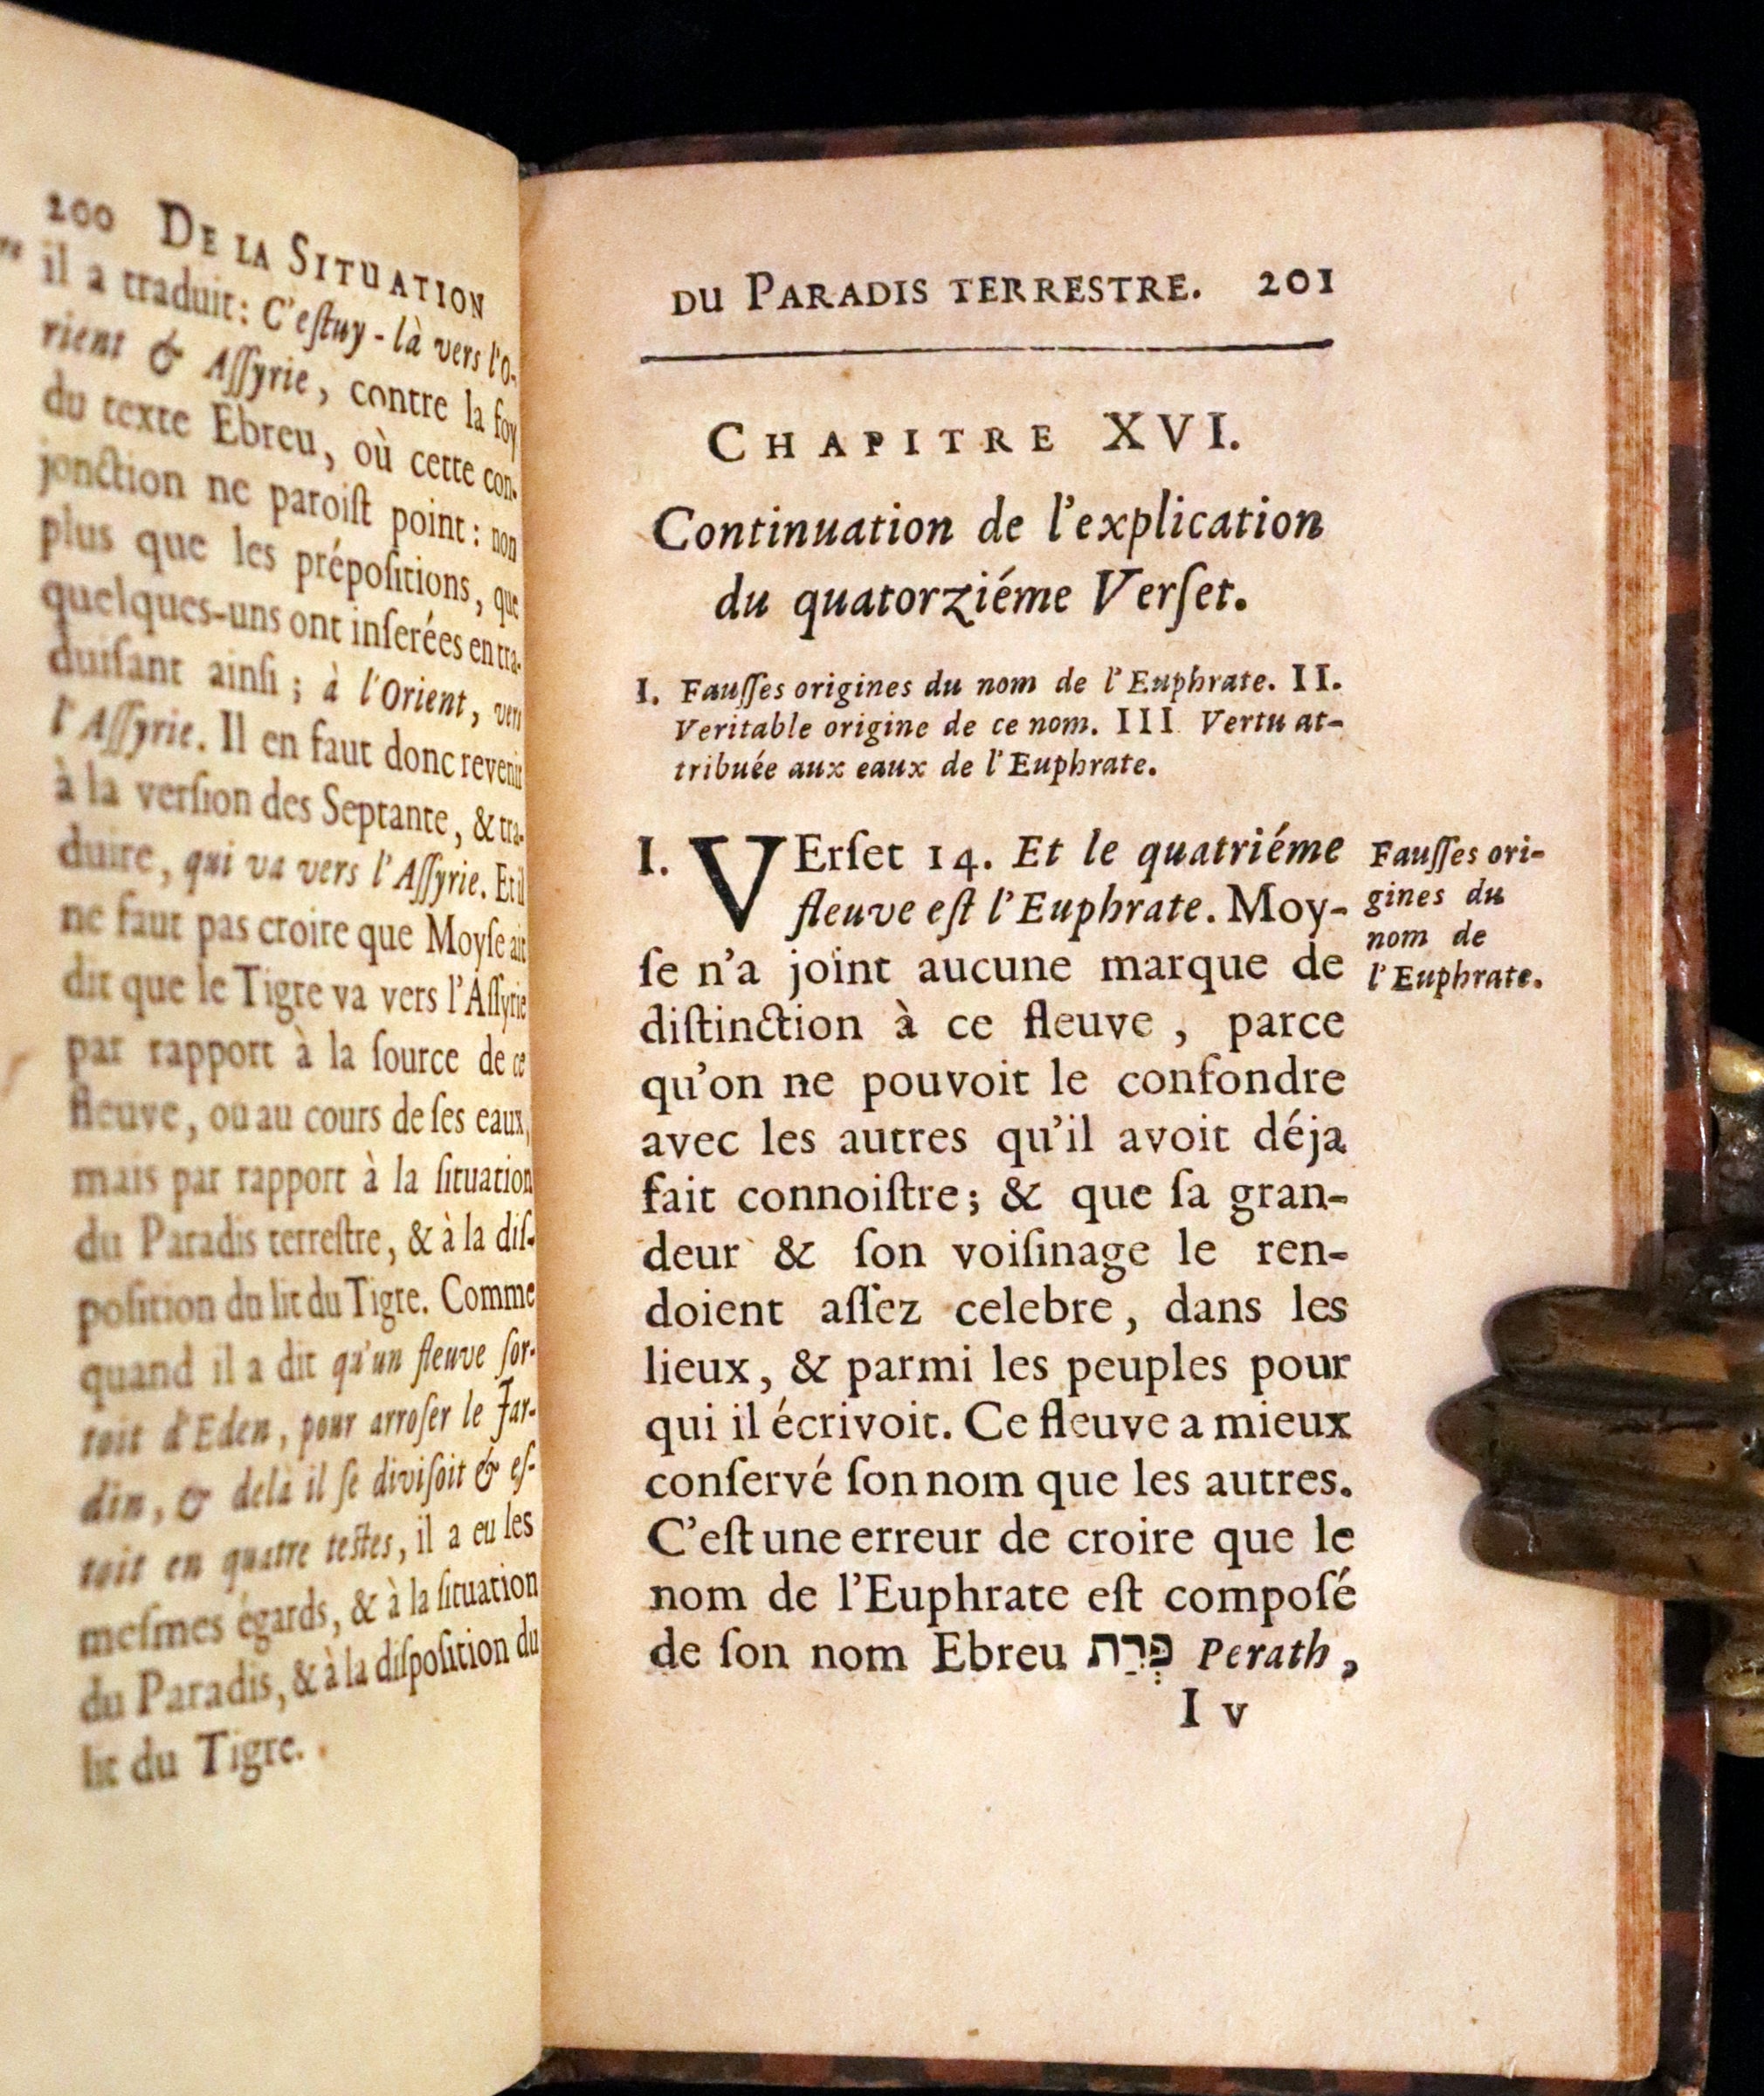 200 DE LA SITUATION
il a traduit: C'eſtuy-là vers l'O-
rient & Aſſyrie, contre la foy
du texte Ebreu, où cette con-
jonction ne paroiſt point: non
plus que les prépoſitions, que
quelques-uns ont inſerées en tra-
duiſant ainſi; à l'Orient, vers
l'Aſſyrie. Il en faut donc revenir
à la verſion des Septante, & tra-
duire, qui va vers l'Aſſyrie. Et il
ne faut pas croire que Moyſe ait
dit que le Tigre va vers l'Aſſyrie
par rapport à la ſource de ce
fleuve, ou au cours de ſes eaux,
mais par rapport à la ſituation
du Paradis terreſtre, & à la diſ-
poſition du lit du Tigre. Comme
quand il a dit qu'un fleuve ſor-
toit d'Eden, pour arroſer le Jar-
din, & delà il ſe diviſoit & eſ-
toit en quatre teſtes, il a eu les
meſmes égards, & à la ſituation
du Paradis, & à la diſpoſition du
lit du Tigre.
DU PARADIS TERRESTRE. 201
CHAPITRE XVI.
Continuation de l'explication
du quatorziéme Verſet.
I. Fauſſes origines du nom de l'Euphrate. II.
Veritable origine de ce nom. III Vertu at-
tribuée aux eaux de l'Euphrate.
I. VErſet 14. Et le quatriéme
fleuve eſt l'Euphrate. Moy-
ſe n'a joint aucune marque de
diſtinction à ce fleuve, parce
qu'on ne pouvoit le confondre
avec les autres qu'il avoit déja
fait connoiſtre; & que ſa gran-
deur & ſon voiſinage le ren-
doient aſſez celebre, dans les
lieux, & parmi les peuples pour
qui il écrivoit. Ce fleuve a mieux
conſervé ſon nom que les autres.
C'eſt une erreur de croire que le
nom de l'Euphrate eſt compoſé
de ſon nom Ebreu פְּרַת Perath,
I v
Fauſſes ori-
gines du
nom de
l'Euphrate.